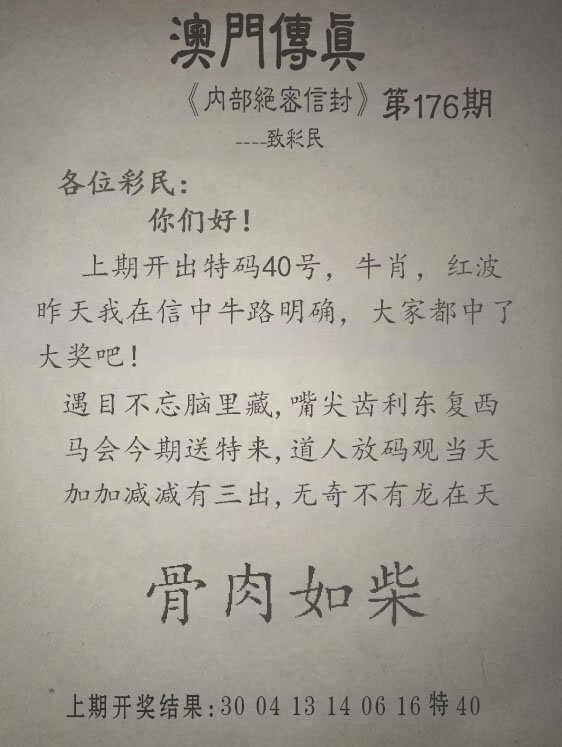 澳門傳眞
《内部絕密信封》第176期
----致彩民
各位彩民:
你们好!
上期开出特码40号，牛肖，红波
昨天我在信中牛路明确，大家都中了
大奖吧!
遇目不忘脑里藏,嘴尖齿利东复西
马会今期送特来,道人放码观当天
加加减减有三出,无奇不有龙在天
骨肉如柴
上期开奖结果:30 04 13 14 06 16特40